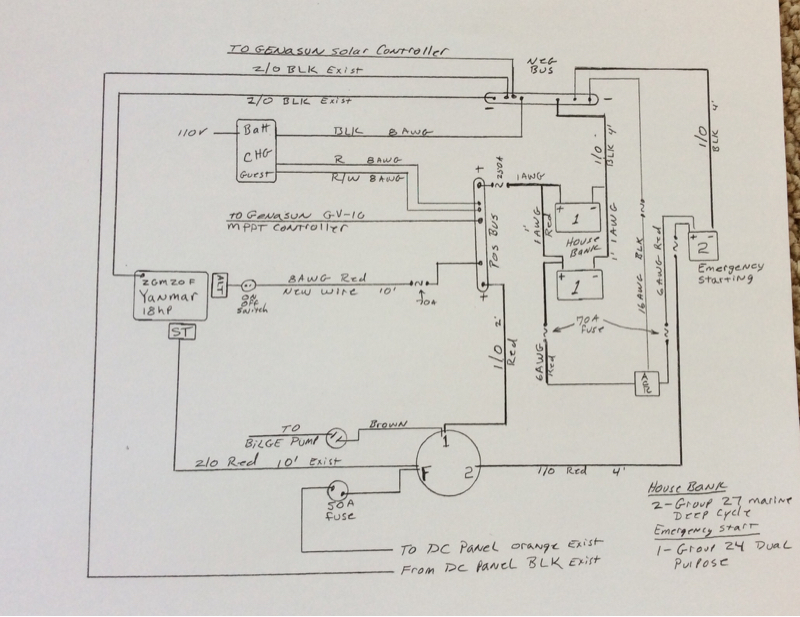 TO GENASUN Solar Controller
2/0 BLK Exist
NEG
BUS
2/0 BLK Exist
-
-
110V
Batt
CHG
Guest
BLK 8AWG
R 8AWG
R/W 8AWG
TO GENASUN GV-10
MPPT CONTROLLER
+
250A
1AWG
POS BUS
+
1/0 BLK 4'
1/0 BLK 4'
+ -
1
HOUSE
BANK
+ -
1
1' 1AWG Red
1' 1AWG
16AWG BLK
6AWG Red
+ -
2
Emergency
Starting
2GM20F
Yanmar
18hp
ALT
ON
OFF
Switch
8AWG Red
New wire 10'
70A
ST
70A
Fuse
6AWG Red
ACR
1/0 2' Red
TO
BILGE PUMP
Brown
1
F
2
2/0 Red 10' Exist
1/0 Red 4'
50A
Fuse
TO DC Panel orange Exist
From DC Panel BLK Exist
House Bank
2-Group 27 marine
Deep Cycle
Emergency Start
1-Group 24 Dual
Purpose